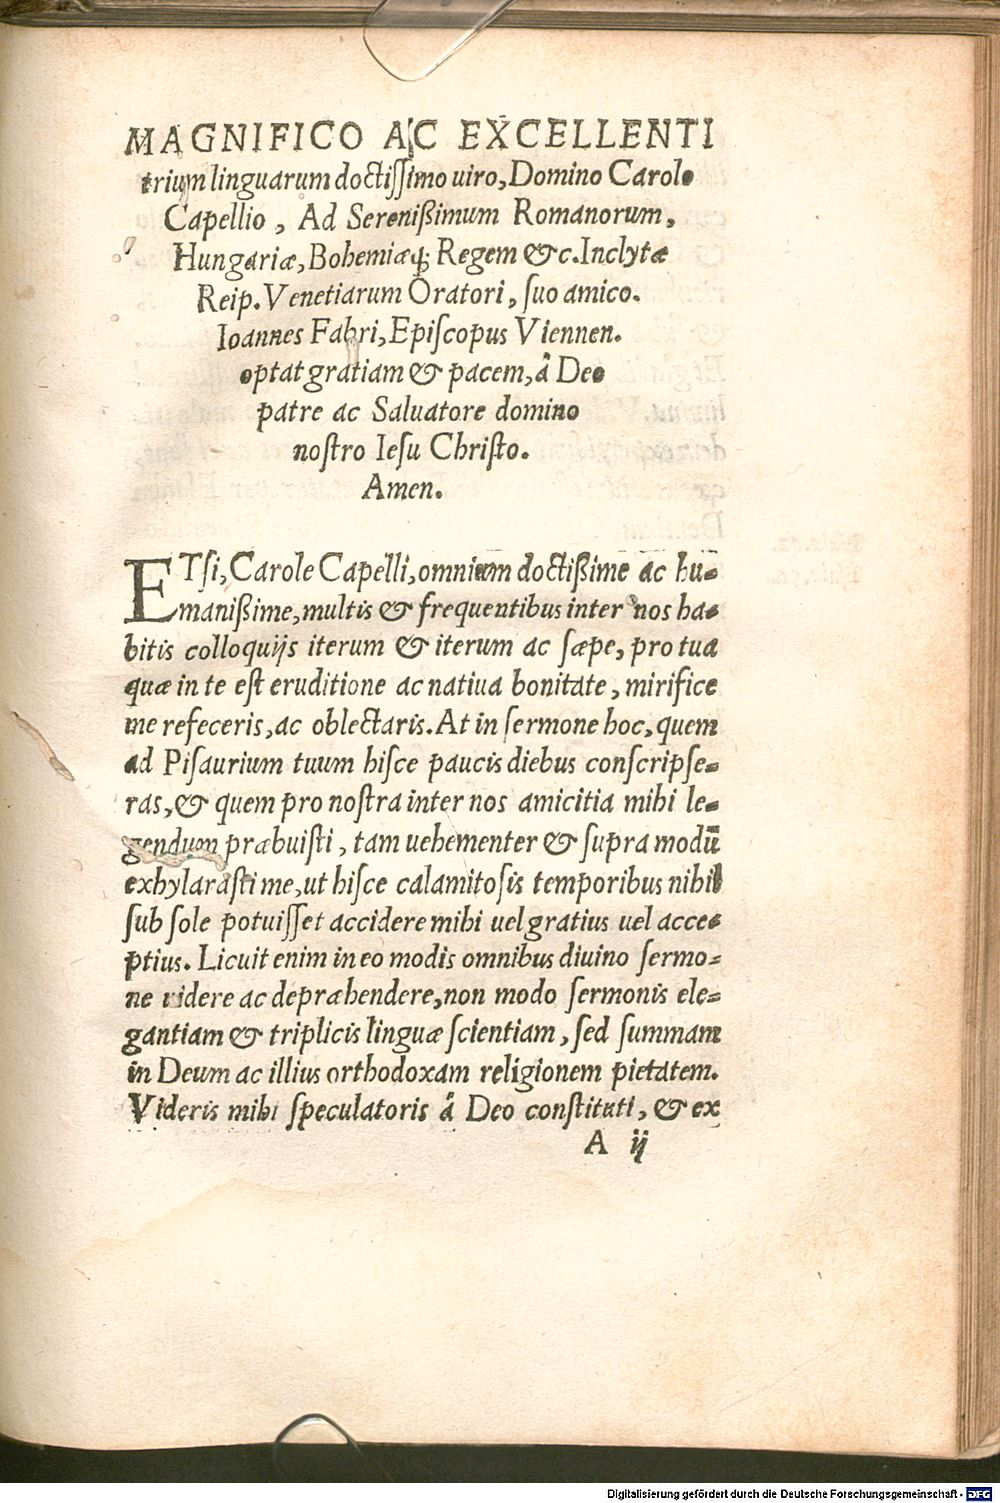 MAGNIFICO AC EXCELLENTI
trium linguarum doctissimo uiro, Domino Carolo
Capellio, Ad Serenißimum Romanorum,
Hungariæ, Bohemiæq; Regem &c. Inclytæ
Reip. Venetiarum Oratori, suo amico.
Ioannes Fabri, Episcopus Viennen.
optat gratiam & pacem, â Deo
patre ac Saluatore domino
nostro Iesu Christo.
Amen.
ETsi, Carole Capelli, omnium doctißime ac hu-
manißime, multis & frequentibus inter nos ha-
bitis colloquijs iterum & iterum ac sæpe, pro tua
quæ in te est eruditione ac natiua bonitate, mirifice
me refeceris, ac oblectaris. At in sermone hoc, quem
ad Pisaurium tuum hisce paucis diebus conscripse-
ras, & quem pro nostra inter nos amicitia mihi le-
gendum præbuisti, tam uehementer & supra modū
exhylarasti me, ut hisce calamitosis temporibus nihil
sub sole potuisset accidere mihi uel gratius uel acce-
ptius. Licuit enim in eo modis omnibus diuino sermo-
ne uidere ac depræhendere, non modo sermonis ele-
gantiam & triplicis linguæ scientiam, sed summam
in Deum ac illius orthodoxam religionem pietatem.
Videris mihi speculatoris â Deo constituti, & ex
A ij
Digitalisierung gefördert durch die Deutsche Forschungsgemeinschaft - DFG